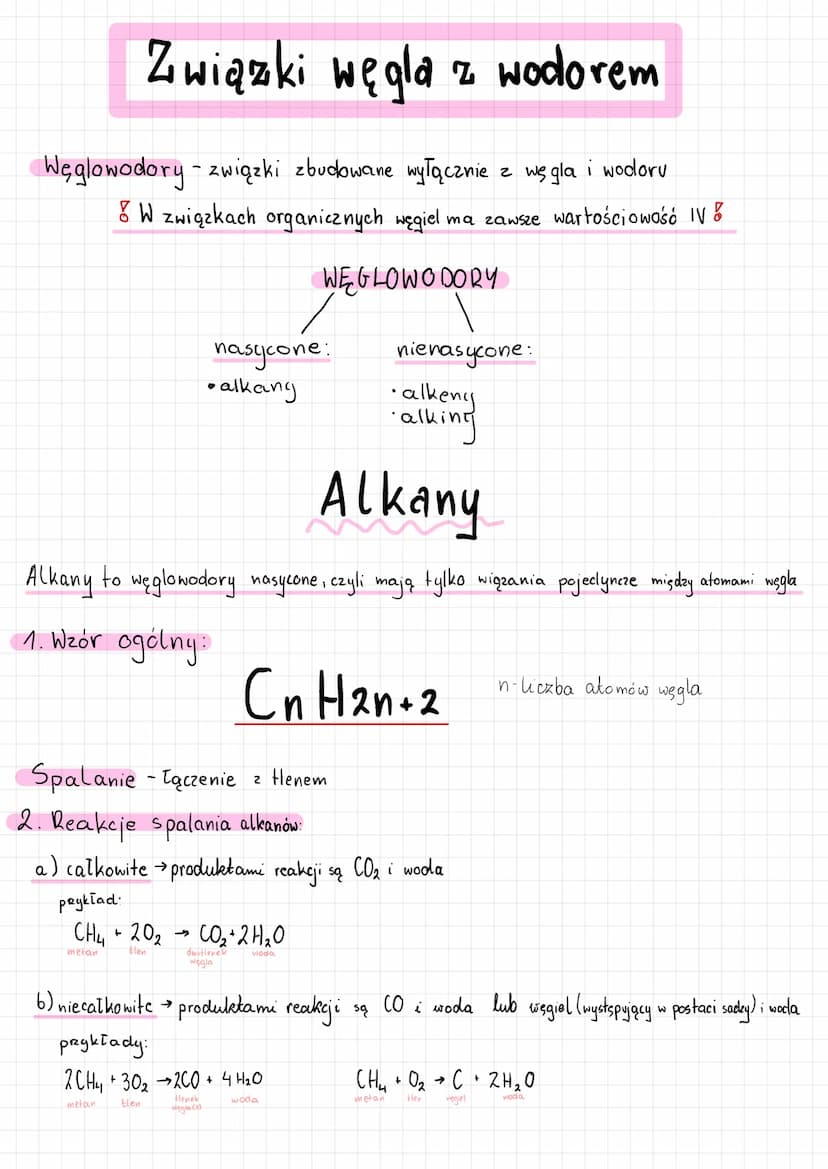 Związki węgla z wodorem
Węglowodory - związki zbudowane wyłącznie z węgla i wodoru
! W związkach organicznych węgiel ma zawsze wartościowość IV !
WĘGLOWODORY
nasycone: nienasycone:
• alkany • alkeny
• alkiny
Alkany
Alkany to węglowodory nasycone, czyli mają tylko wiązania pojedyncze między atomami węgla
1. Wzór ogólny:
CnH2n+2 n-liczba atomów węgla
Spalanie - łączenie z tlenem
2. Reakcje spalania alkanów:
a) całkowite → produktami reakcji są CO₂ i woda
pzykład:
CH₄ + 2O₂ → CO₂ + 2H₂O
metan tlen dwutlenek węgla woda
b) niecałkowite → produktami reakcji są CO i woda lub węgiel (występujący w postaci sadzy) i woda
pzykłady:
2CH₄ + 3O₂ → 2CO + 4H₂O CH₄ + O₂ → C + 2H₂O
metan tlen tlenek węgla(II) woda metan tlen węgiel woda